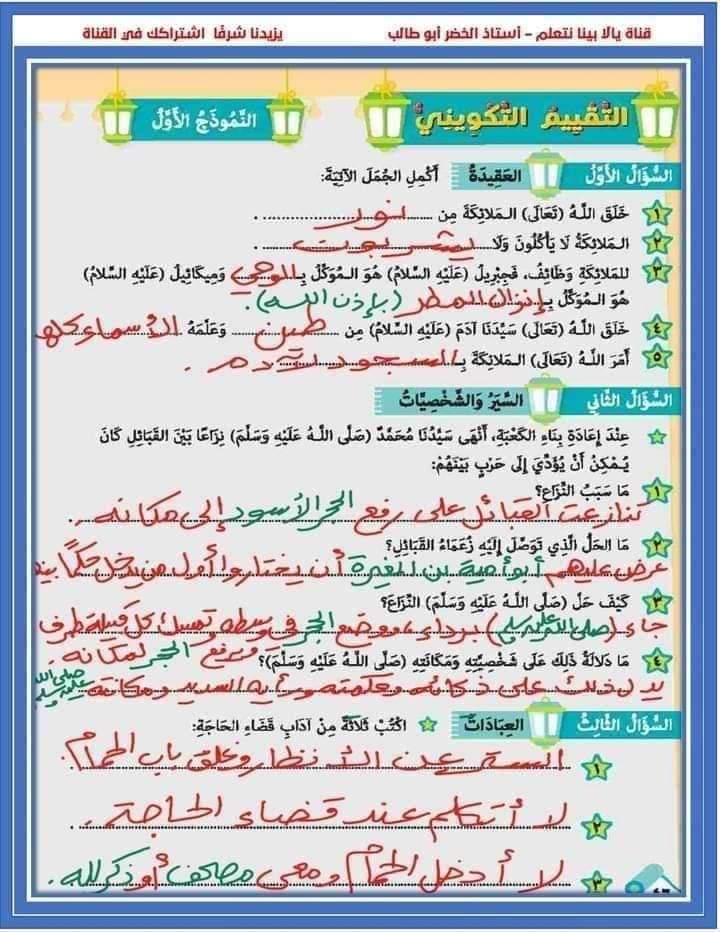 قناة يالا بينا نتعلم - أستاذ الخضر أبو طالب
يزيدنا شرفًا اشتراكك في القناة
التقييم التكويني
النَّمُوذَجُ الأَوَّلُ
السُّؤَالُ الأَوَّلُ العَقِيدَةُ أَكْمِلِ الجُمَلَ الآتِيَةَ:
١ خَلَقَ اللَّهُ (تَعَالَى) الـمَلائِكَةَ مِن نور
٢ الـمَلائِكَةُ لَا يَأْكُلُونَ وَلَا يشربون
٣ للمَلائِكَةِ وَظَائِفُ، فَجِبْرِيلُ (عَلَيْهِ السَّلامُ) هُوَ الـمُوَكَّلُ بِالوحي وَمِيكَائِيلُ (عَلَيْهِ السَّلامُ)
هُوَ الـمُوَكَّلُ بِإنزال المطر (بإذن الله).
٤ خَلَقَ اللَّهُ (تَعَالَى) سَيِّدَنَا آدَمَ (عَلَيْهِ السَّلامُ) مِن طين وَعَلَّمَهُ الأسماء كلها
٥ أَمَرَ اللَّهُ (تَعَالَى) الـمَلائِكَةَ بِالسجود لآدم.
السُّؤَالُ الثَّانِي السِّيَرُ وَالشَّخْصِيَّاتُ
عِنْدَ إِعَادَةِ بِنَاءِ الكَعْبَةِ، أَنْهَى سَيِّدُنَا مُحَمَّدٌ (صَلَّى اللَّهُ عَلَيْهِ وَسَلَّمَ) نِزَاعًا بَيْنَ القَبَائِلِ كَانَ
يُـمْكِنُ أَنْ يُؤَدِّيَ إِلَى حَرْبٍ بَيْنَهُمْ:
١ مَا سَبَبُ النِّزَاعِ؟
تنازعت القبائل على رفع الحجر الأسود إلى مكانه.
٢ مَا الحَلُّ الَّذِي تَوَصَّلَ إِلَيْهِ زُعَمَاءُ القَبَائِلِ؟
عرض عليهم أبو أمية بن المغيرة أن يختاروا أول من يدخل حكمًا
٣ كَيْفَ حَلَّ (صَلَّى اللَّهُ عَلَيْهِ وَسَلَّمَ) النِّزَاعَ؟
جاء (صلى الله عليه وسلم) برداء، ووضع الحجر في وسطه وتمسك كل قبيلة طرف
ويرفع الحجر لمكانه.
٤ مَا دَلالَةُ ذَلِكَ عَلَى شَخْصِيَّتِهِ وَمَكَانَتِهِ (صَلَّى اللَّهُ عَلَيْهِ وَسَلَّمَ)؟
يدل ذلك على ذكائه وحكمته ورأيه السديد ومكانته صلى الله عليه وسلم
السُّؤَالُ الثَّالِثُ العِبَادَاتُ اكْتُبْ ثَلاثَةً مِنْ آدَابِ قَضَاءِ الحَاجَةِ:
١ الستر عن الأنظار وغلق باب الحمام.
٢ لا أتكلم عند قضاء الحاجة.
٣ لا أدخل الحمام ومعي مصحف أو ذكر لله.